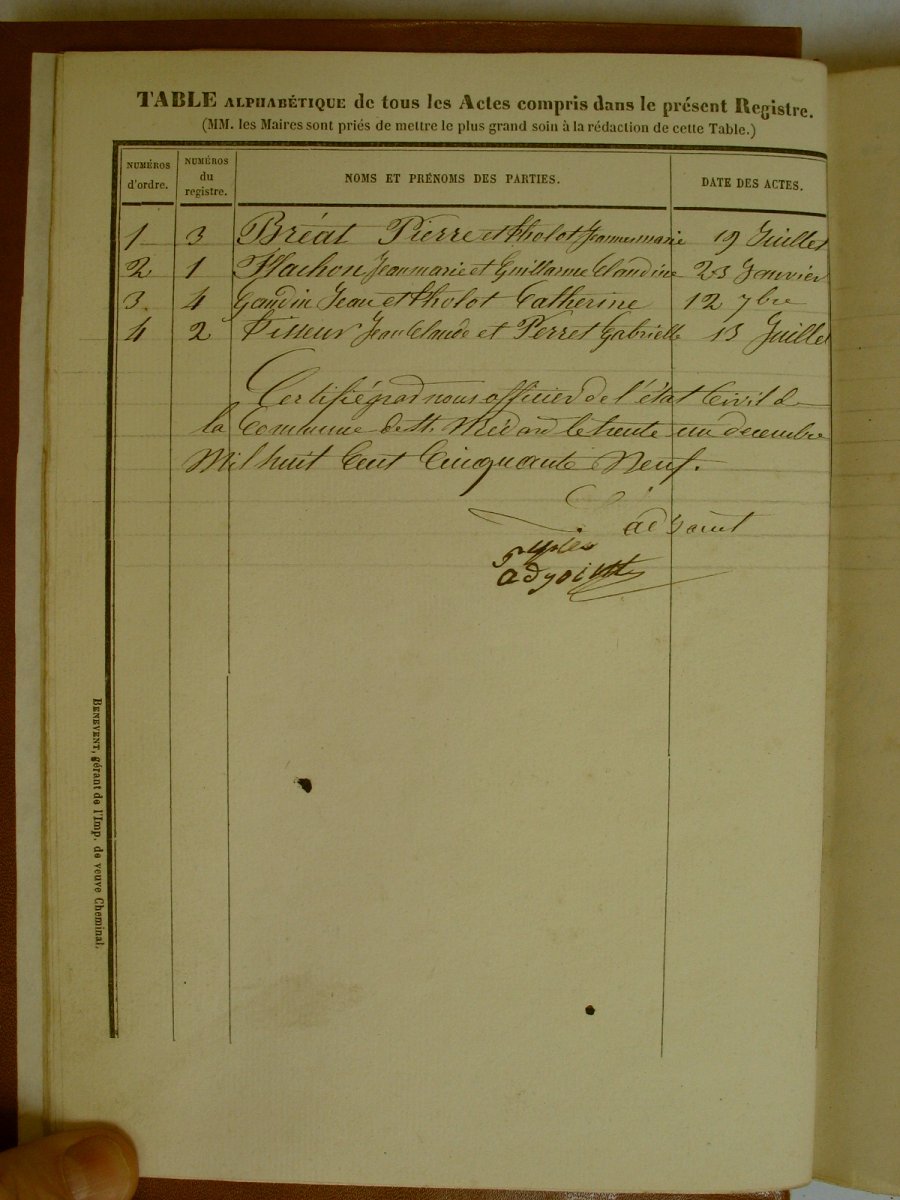 TABLE ALPHABÉTIQUE de tous les Actes compris dans le présent Registre.
(MM. les Maires sont priés de mettre le plus grand soin à la rédaction de cette Table.)
NUMÉROS d'ordre. NUMÉROS du registre. NOMS ET PRÉNOMS DES PARTIES. DATE DES ACTES.
1 3 Bréat Pierre et Tholot Jeannemarie 19 Juillet
2 1 Flachon Jeanmarie et Guillarme Claudine 23 Janvier
3. 4 Gaudin Jean et Tholot Catherine 12 7bre
4 2 Jean Claude et Perret Gabrielle 13 Juillet
Certifié par nous officier de l'état Civil de
la Commune de St. Médard le trente un decembre
Mil huit Cent Cinquante Neuf.
adjoint
BENEVENT, gérant de l'Imp. de veuve Cheminal.